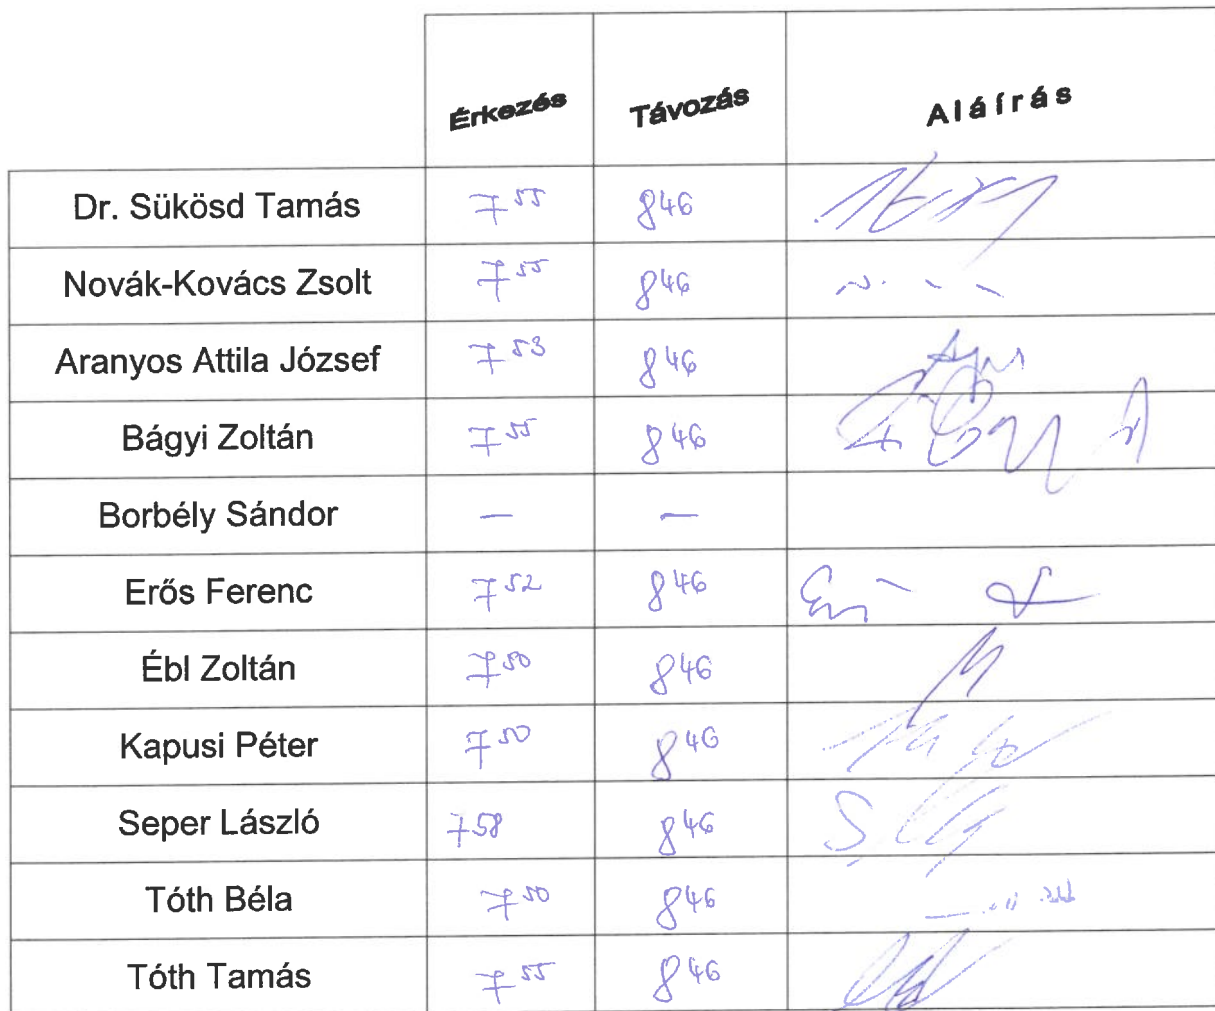 Érkezés Távozás Aláírás
Dr. Sükösd Tamás 7 55 8 46
Novák-Kovács Zsolt 7 55 8 46
Aranyos Attila József 7 53 8 46
Bágyi Zoltán 7 55 8 46
Borbély Sándor — —
Erős Ferenc 7 52 8 46
Ébl Zoltán 7 50 8 46
Kapusi Péter 7 50 8 46
Seper László 7 58 8 46
Tóth Béla 7 50 8 46
Tóth Tamás 7 55 8 46